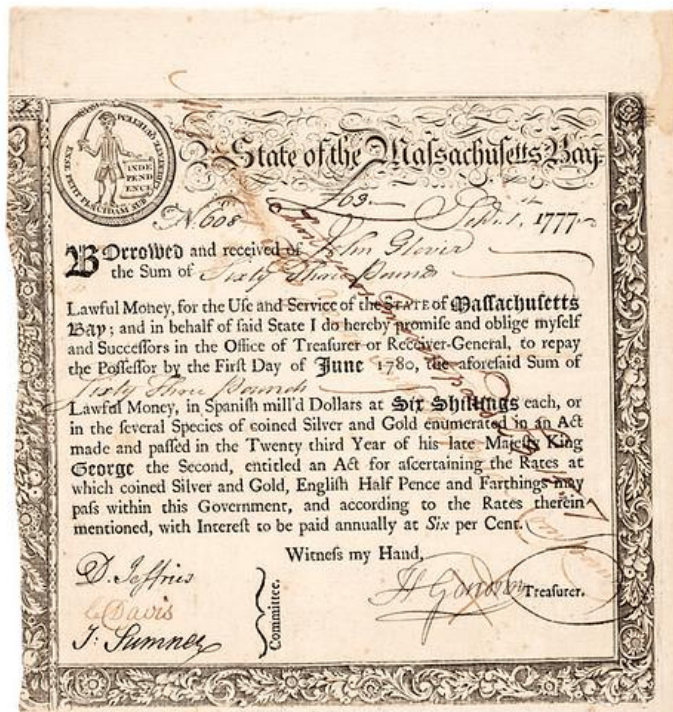 ENSE PETIT PLACIDAM SUB
INDE
PEND
ENCE
State of the Maſſachuſetts Bay.
£63.
No. 608 Sept. 1st, 1777.
BOrrowed and received of John Glover
the Sum of Sixty Three Pounds
Lawful Money, for the Uſe and Service of the STATE of Maſſachuſetts
Bay; and in behalf of ſaid State I do hereby promiſe and oblige myſelf
and Succeſſors in the Office of Treaſurer or Receiver-General, to repay
the Poſſeſſor by the Firſt Day of June 1780, the aforeſaid Sum of
Sixty Three Pounds
Lawful Money, in Spaniſh mill'd Dollars at Six Shillings each, or
in the ſeveral Species of coined Silver and Gold enumerated in an Act
made and paſſed in the Twenty third Year of his late Majeſty King
George the Second, entitled an Act for aſcertaining the Rates at
which coined Silver and Gold, Engliſh Half Pence and Farthings may
paſs within this Government, and according to the Rates therein
mentioned, with Intereſt to be paid annually at Six per Cent.
Witneſs my Hand,
D. Jeffries
C Davis
J: Sumner
Committee.
H Gardner Treaſurer.